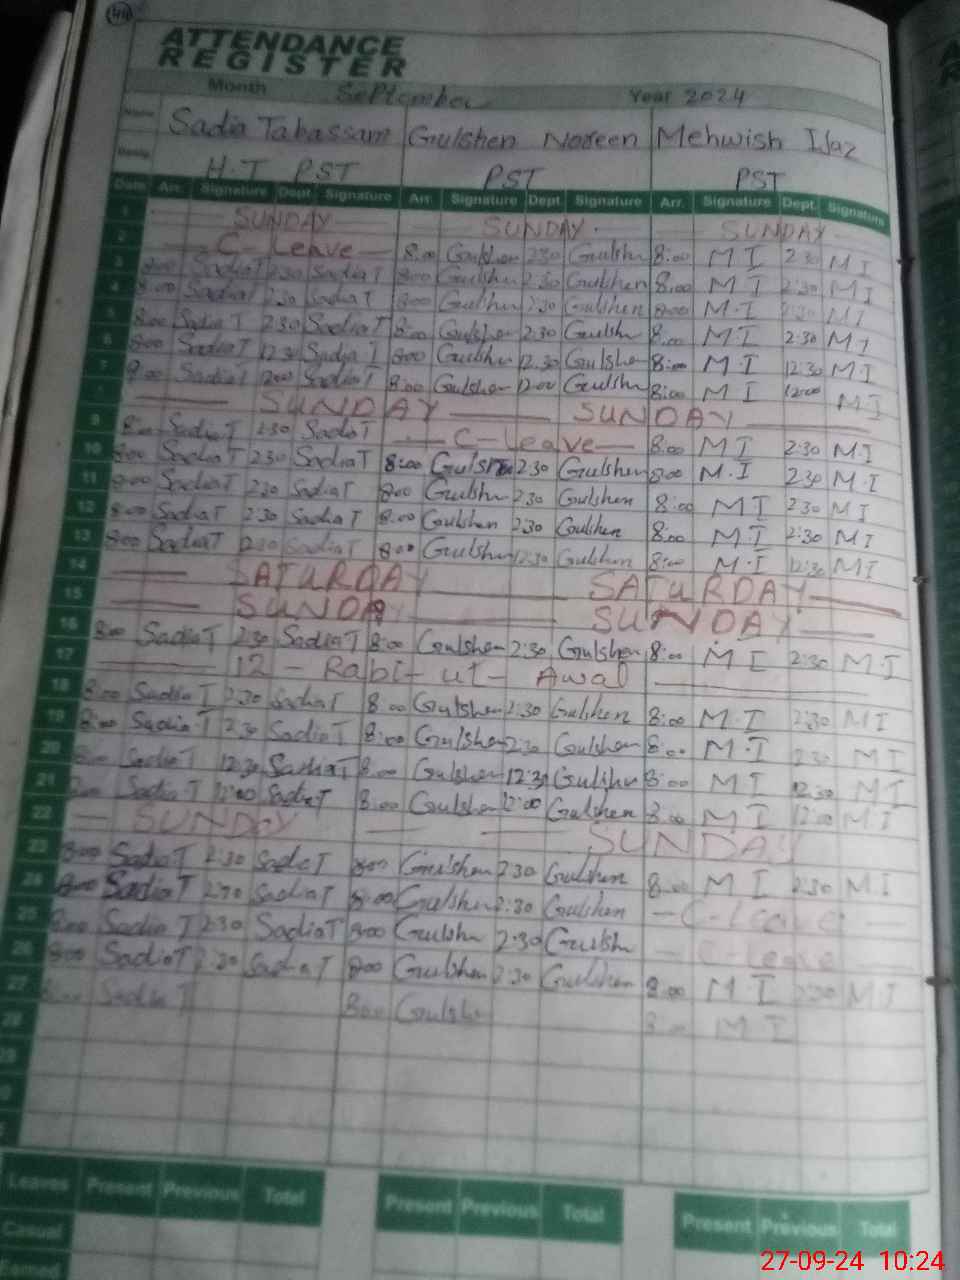 ATTENDANCE
REGISTER
Month September Year 2024
Name Sadia Tabassam Gulshen Noreen Mehwish Ijaz
H.T PST PST PST
Date Arr. Signature Dept Signature Arr. Signature Dept Signature Arr. Signature Dept. Signature
1 SUNDAY SUNDAY SUNDAY
2 C-Leave 8:00 Gulshen 2:30 Gulshen 8:00 M I 2:30 M I
3 8:00 SadiaT 2:30 SadiaT 8:00 Gulshen 2:30 Gulshen 8:00 M I 2:30 M I
4 8:00 SadiaT 2:30 SadiaT 8:00 Gulshen 2:30 Gulshen 8:00 M.I 2:30 M I
5 8:00 Sadia T 2:30 SadiaT 8:00 Gulshen 2:30 Gulshen 8:00 M I 2:30 M I
6 8:00 SadiaT 12:30 Sadia T 8:00 Gulshen 12:30 Gulshen 8:00 M.I 12:30 M.I
7 8:00 SadiaT 12:00 SadiaT 8:00 Gulshen 12:00 Gulshen 8:00 M I 12:00 M.I
SUNDAY SUNDAY
9 8:00 SadiaT 2:30 SadiaT C-Leave 8:00 M I 2:30 M.I
10 8:00 SadiaT 2:30 SadiaT 8:00 Gulshen 2:30 Gulshen 8:00 M.I 2:30 M.I
11 8:00 SadiaT 2:30 SadiaT 8:00 Gulshn 2:30 Gulshen 8:00 M I 2:30 M I
12 8:00 SadiaT 2:30 SadiaT 8:00 Gulshen 2:30 Gulshen 8:00 M.I 2:30 M I
13 8:00 SadiaT 12:30 SadiaT 8:00 Gulshen 12:30 Gulshen 8:00 M.I 12:30 M I
14 SATURDAY SATURDAY
15 SUNDAY SUNDAY
16 8:00 SadiaT 2:30 SadiaT 8:00 Gulshen 2:30 Gulshen 8:00 M I 2:30 M I
17 12 - Rabi-ut- Awal
18 8:00 Sadia T 2:30 SadiaT 8:00 Gulshen 2:30 Gulshen 8:00 M.I 2:30 M I
19 8:00 Sadia T 2:30 SadiaT 8:00 Gulshen 2:30 Gulshen 8:00 M.I 2:30 M I
20 8:00 SadiaT 12:30 SadiaT 8:00 Gulshen 12:30 Gulshen 8:00 M I 12:30 M I
21 8:00 Sadia T 12:00 SadiaT 8:00 Gulshen 12:00 Gulshen 8:00 M I 12:00 M I
22 SUNDAY SUNDAY
23 8:00 SadiaT 2:30 SadiaT 8:00 Gulshen 2:30 Gulshen 8:00 M I 2:30 M I
24 8:00 SadiaT 2:30 SadiaT 8:00 Gulshen 2:30 Gulshen C-Leave
25 8:00 Sadia T 2:30 SadiaT 8:00 Gulshn 2:30 Gulshn C-Leave
26 8:00 SadiaT 2:30 SadiaT 8:00 Gulshen 2:30 Gulshen 8:00 M I 2:30 M I
27 8:00 SadiaT 8:00 Gulshn 8:00 M I
28
29
Leaves Present Previous Total Present Previous Total Present Previous Total
Casual
Earned
27-09-24 10:24